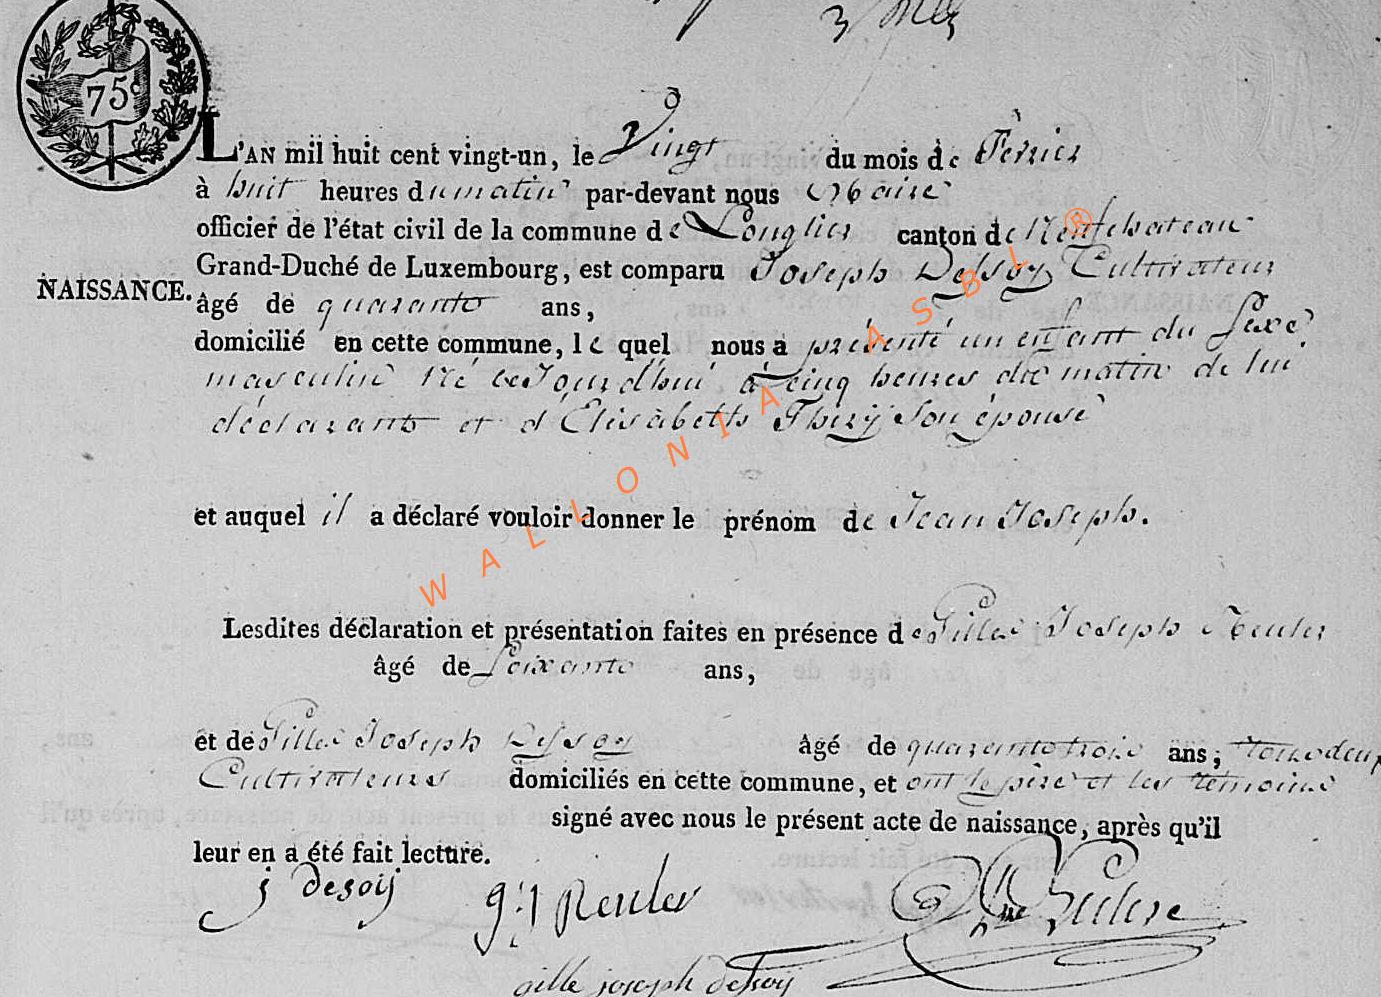 75c
L'AN mil huit cent vingt-un, le Vingt du mois de Fevrier
à huit heures du matin par-devant nous Maire
officier de l'état civil de la commune de Longlier canton de Neufchateau
Grand-Duché de Luxembourg, est comparu Joseph Dessoy Cultivateur
NAISSANCE.
âgé de quarante ans,
domicilié en cette commune, le quel nous a présenté un enfant du Sexe
masculin né cejourd'hui à cinq heures du matin de lui
déclarant et d'Elisabeth Thiry Son épouse
et auquel il a déclaré vouloir donner le prénom de Jean Joseph.
Lesdites déclaration et présentation faites en présence de Gille Joseph Reuler
âgé de Soixante ans,
et de Gille Joseph Dessoy âgé de quarante trois ans; tous deux
Cultivateurs domiciliés en cette commune, et ont le père et les témoins
signé avec nous le présent acte de naissance, après qu'il
leur en a été fait lecture.
j desoij g: j Reuler
gille joseph dessoij
WALLONIA ASBL ®